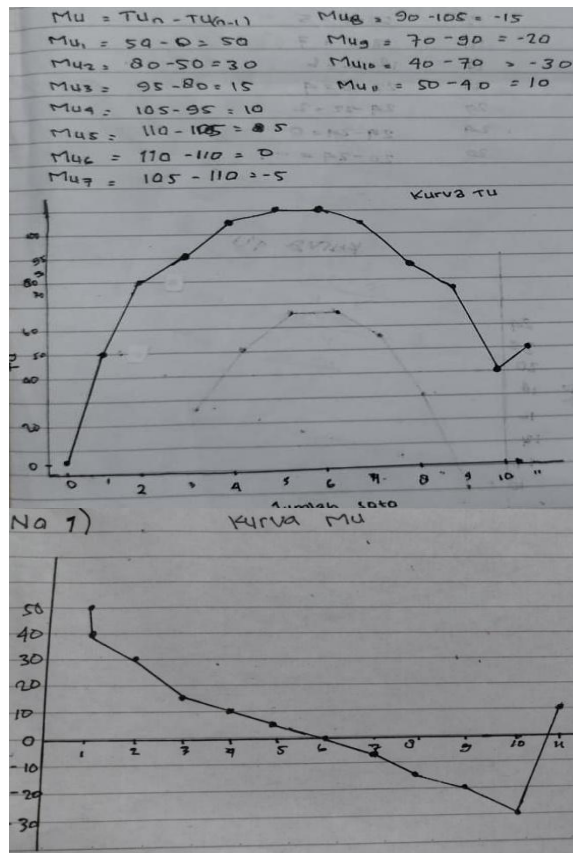 Mu = Tun - Tu(n-1)
Mu1 = 50 - 0 = 50
Mu2 = 80 - 50 = 30
Mu3 = 95 - 80 = 15
Mu4 = 105 - 95 = 10
Mu5 = 110 - 105 = 5
Mu6 = 110 - 110 = 0
Mu7 = 105 - 110 = -5
Mu8 = 90 - 105 = -15
Mu9 = 70 - 90 = -20
Mu10 = 40 - 70 = -30
= 50 - 40 = 10
Kurva Tu
80
60
50
20
0
Tu
0 1 2 3 4 5 6 7 8 9 10 11
Jumlah soto
No 1) Kurva Mu
50
40
30
20
10
0
-10
-20
-30
1 2 3 4 5 6 7 8 9 10 11